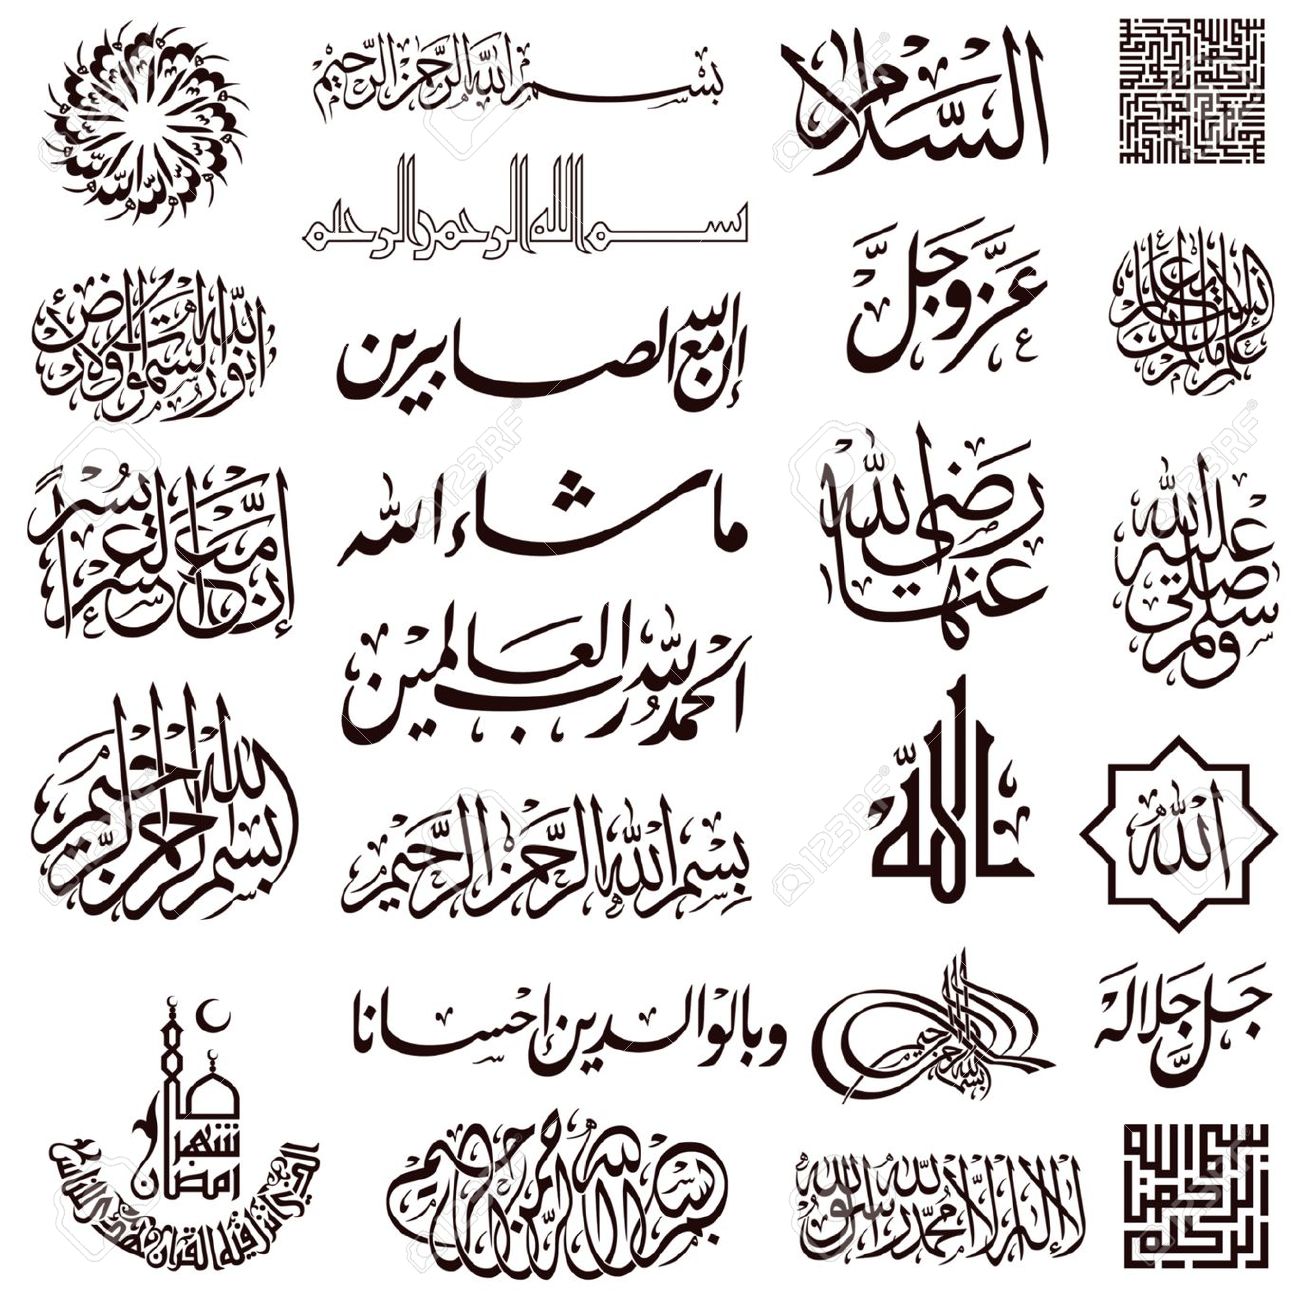 بسم الله الرحمن الرحيم
السلام
بسم الله الرحمن الرحيم
عز وجل
ع
علم الإنسان ما لم يعلم
الله نور السموات والأرض
إن الله مع الصابرين
إن مع العسر يسرًا
ما شاء الله
رضي الله عنها
صلى الله عليه وسلم
الحمد لله رب العالمين
بسم الله الرحمن الرحيم
الله
الله
بسم الله الرحمن الرحيم
وبالوالدين إحسانا
بسم الله الرحمن الرحيم
جل جلاله
شهر رمضان
الذي أنزل فيه القرآن هدى للناس
بسم الله الرحمن الرحيم
لا إله إلا الله محمد رسول الله
بسم الله الرحمن الرحيم
123RF